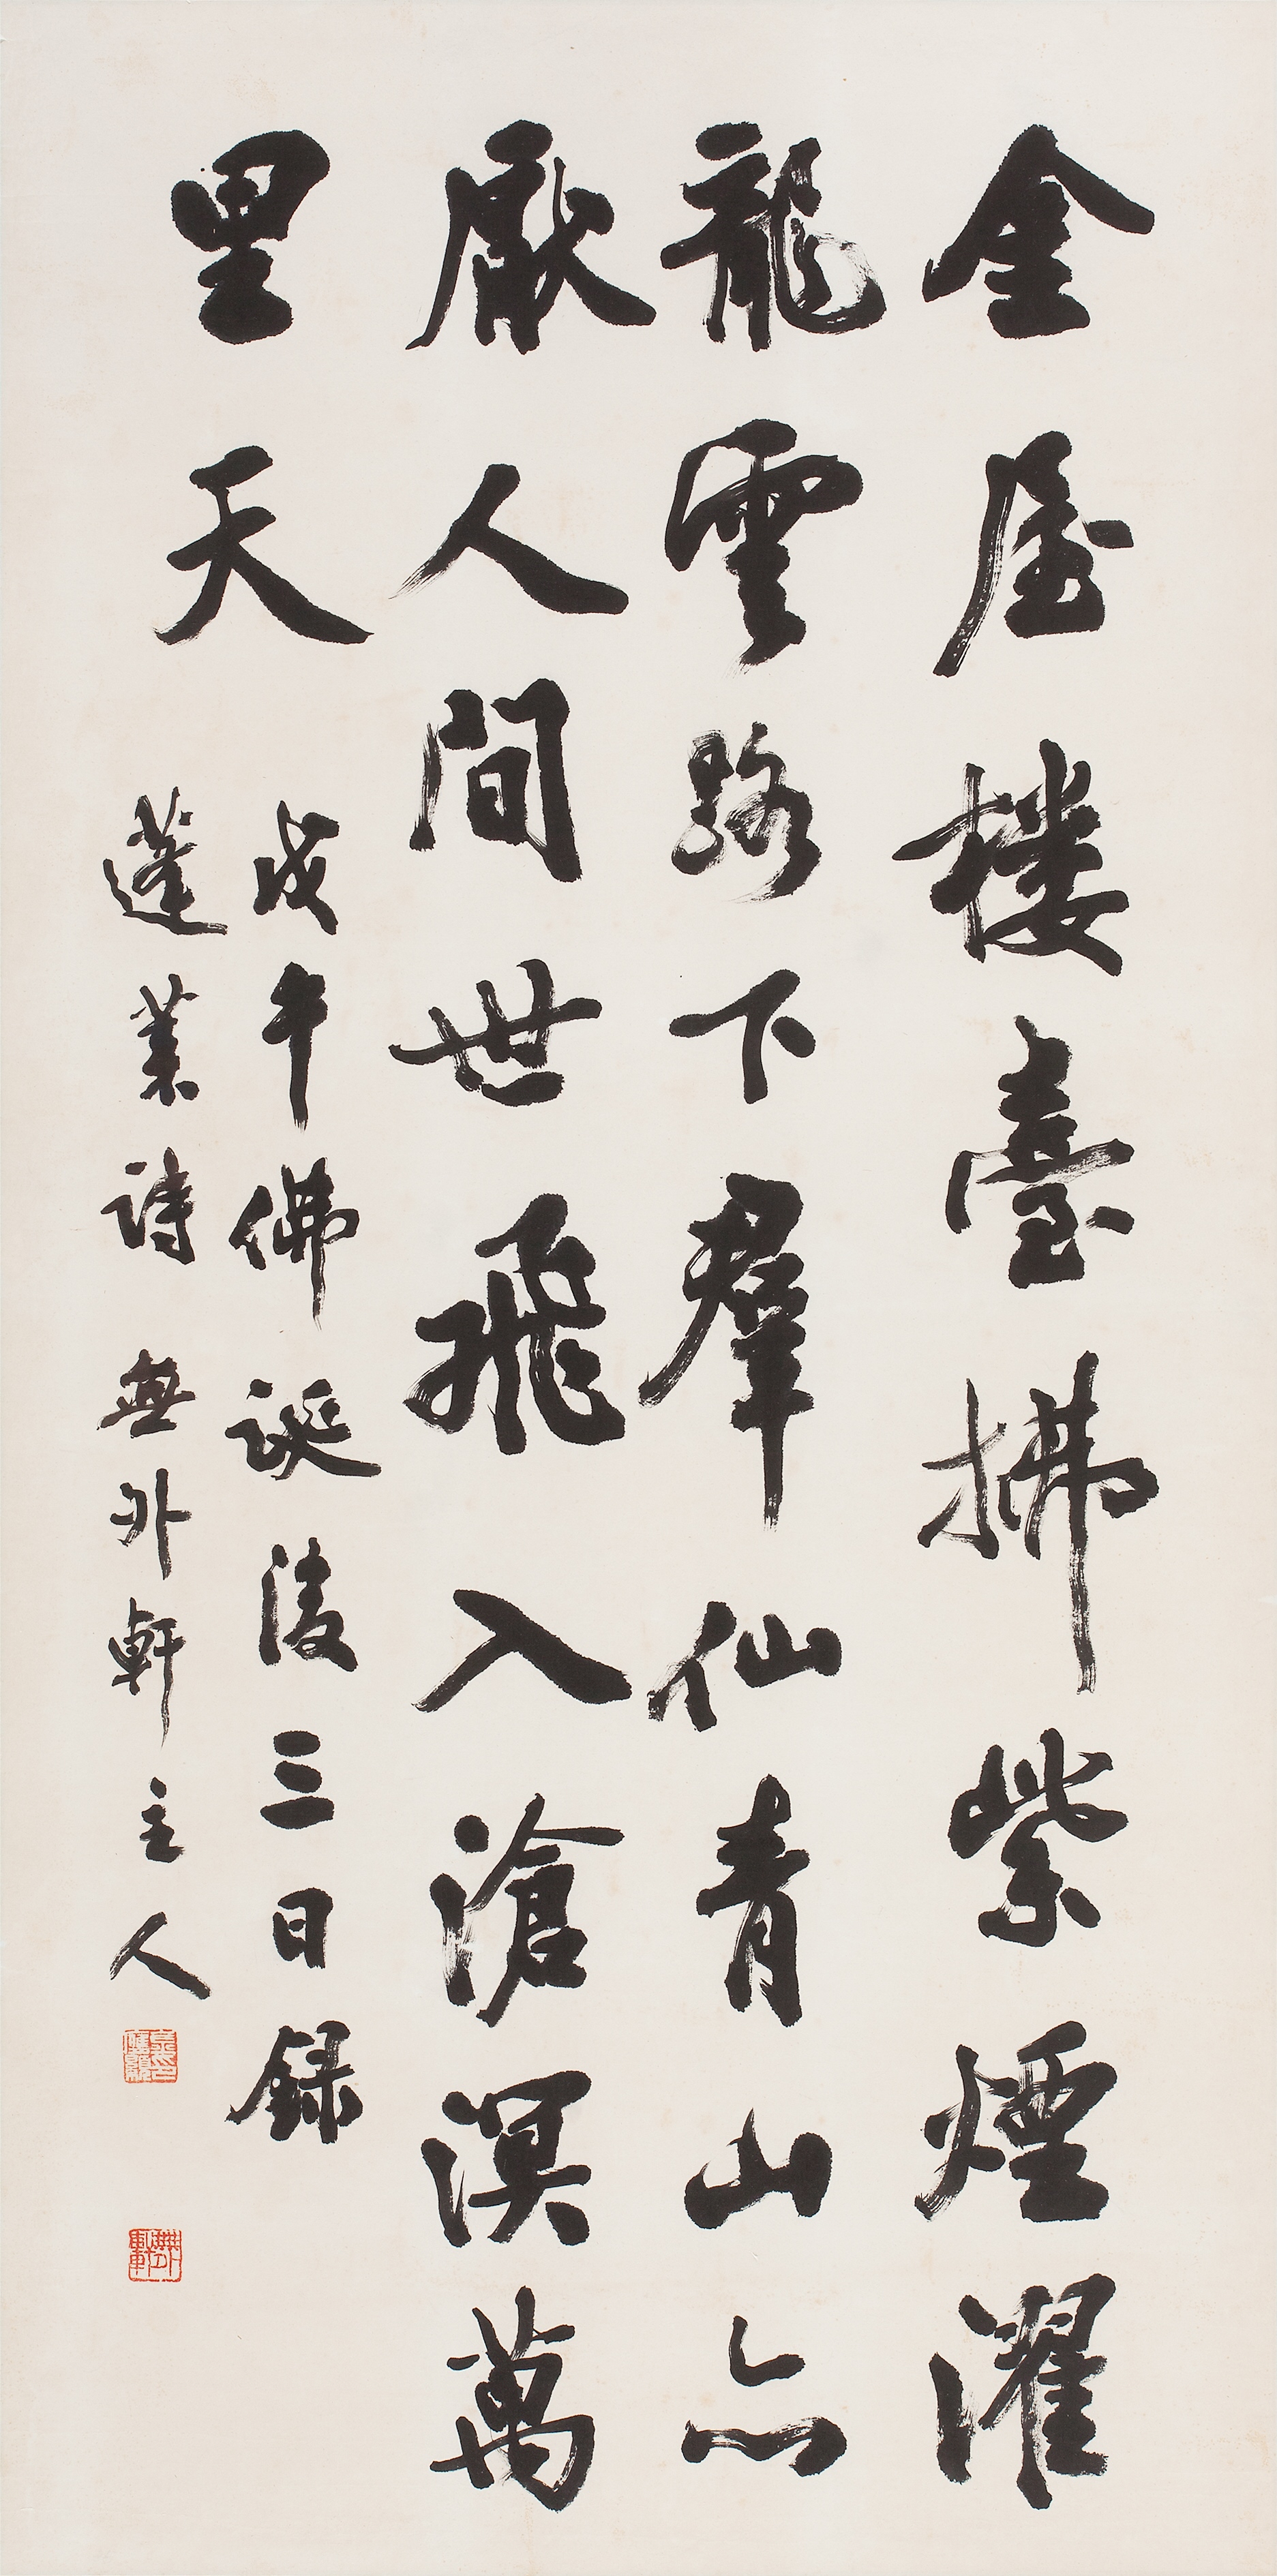 金屋楼臺拂紫煙濯
龍雲路下羣仙青山亦
厭人間世飛入滄溟萬
里天
戊午佛誕後三日録
蓬莱詩 無外軒主人
無外軒